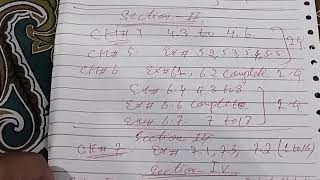 Section - II
CH# 4 4.3 to 4.6
CH# 5 Ex# 5.2, 5.3, 5.4, 5.5 2Q
CH# 6 Ex# 6.1, 6.2 complete 1-Q
Ex# 6.4 Q.3 to 8
Ex# 6.6 complete 1-Q
Ex# 6.7 7 to 13
Section III
CH# 7 Ex# 7.1, 7.3, 7.2 (1 to 16)
Section IV